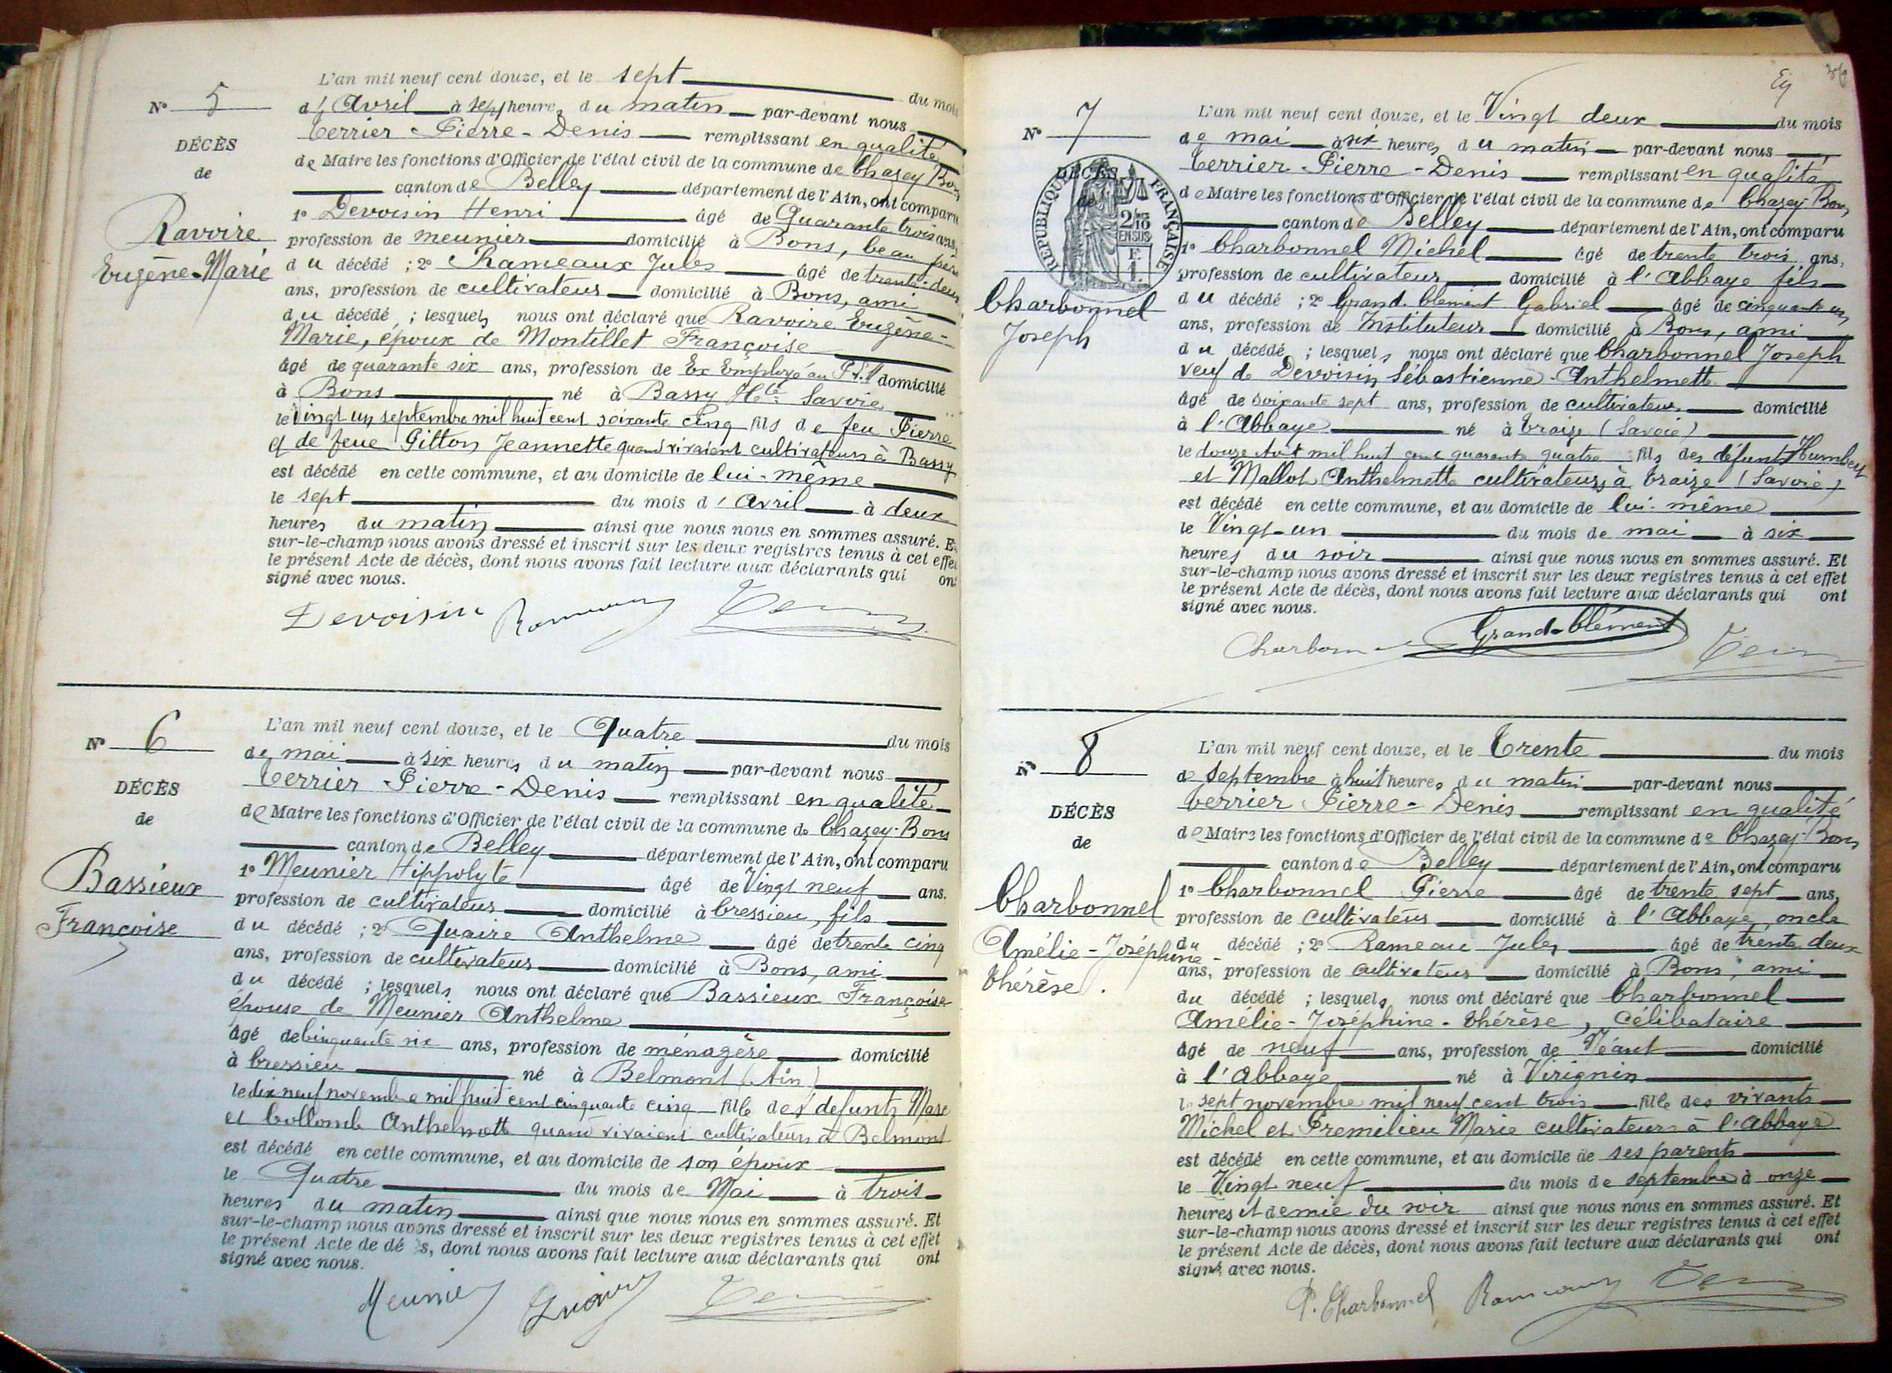 L'an mil neuf cent douze, et le sept du mois
N° 5
d'Avril à sept heures du matin par-devant nous
Terrier Pierre-Denis remplissant en qualité
DÉCÈS
de Maire les fonctions d'Officier de l'état civil de la commune de Chazey Bons
de
canton de Belley département de l'Ain, ont comparu
1° Devoisin Henri âgé de Quarante trois ans,
Ravoire
profession de meunier domicilié à Bons, beau père
Eugène-Marie
du décédé ; 2° Rameaux Jules âgé de trente-deux
ans, profession de cultivateur domicilié à Bons, ami
du décédé ; lesquels nous ont déclaré que Ravoire Eugène-
Marie, époux de Montillet Françoise
âgé de quarante six ans, profession de Ex Employé au domicilié
à Bons né à Bassy Hte Savoie
le vingt un septembre mil huit cent soixante cinq fils de feu Pierre
et de feue Gitton Jeannette quand vivaient cultivateurs à Bassy
est décédé en cette commune, et au domicile de lui-même
le sept du mois d'Avril à deux
heures du matin ainsi que nous nous en sommes assuré. Et
sur-le-champ nous avons dressé et inscrit sur les deux registres tenus à cet effet
le présent Acte de décès, dont nous avons fait lecture aux déclarants qui ont
signé avec nous.
Devoisin Rameaux Terrier
L'an mil neuf cent douze, et le Quatre du mois
N° 6
de mai à six heures du matin par-devant nous
Terrier Pierre-Denis remplissant en qualité
DÉCÈS
de Maire les fonctions d'Officier de l'état civil de la commune de Chazey-Bons
de
canton de Belley département de l'Ain, ont comparu
1° Meunier Hippolyte âgé de Vingt neuf ans.
Bassieux
profession de cultivateur domicilié à Cressieu, fils
Françoise
du décédé ; 2° Quaire Anthelme âgé de trente cinq
ans, profession de cultivateur domicilié à Bons, ami
du décédé ; lesquels nous ont déclaré que Bassieux Françoise
épouse de Meunier Anthelme
âgé de Cinquante six ans, profession de ménagère domicilié
à Cressieu né à Belmont (Ain)
le dix neuf novembre mil huit cent cinquante cinq fille des défunts Marc
et Collomb Anthelmette quand vivaient cultivateurs à Belmont
est décédé en cette commune, et au domicile de son époux
le Quatre du mois de Mai à trois
heures du matin ainsi que nous nous en sommes assuré. Et
sur-le-champ nous avons dressé et inscrit sur les deux registres tenus à cet effet
le présent Acte de décès, dont nous avons fait lecture aux déclarants qui ont
signé avec nous.
Meunier Quaire Terrier
L'an mil neuf cent douze, et le Vingt deux du mois
N° 7
de mai à six heures du matin par-devant nous
Terrier Pierre-Denis remplissant en qualité
DÉCÈS
de Maire les fonctions d'Officier de l'état civil de la commune de Chazey-Bons
de
RÉPUBLIQUE FRANÇAISE
2/10 EN SUS
F. 1.
canton de Belley département de l'Ain, ont comparu
1° Charbonnel Michel âgé de trente trois ans,
profession de cultivateur domicilié à l'Abbaye fils
Charbonnel
Joseph
du décédé ; 2° Grand-Clément Gabriel âgé de cinquante un
ans, profession de Instituteur domicilié à Bons, ami
du décédé ; lesquels nous ont déclaré que Charbonnel Joseph
veuf de Devoisin Sébastienne-Anthelmette
âgé de soixante sept ans, profession de cultivateur domicilié
à l'Abbaye né à Traize (Savoie)
le douze Août mil huit cent quarante quatre fils des défunts Humbert
et Mallot Anthelmette cultivateurs à Traize (Savoie)
est décédé en cette commune, et au domicile de lui-même
le Vingt-un du mois de mai à six
heures du soir ainsi que nous nous en sommes assuré. Et
sur-le-champ nous avons dressé et inscrit sur les deux registres tenus à cet effet
le présent Acte de décès, dont nous avons fait lecture aux déclarants qui ont
signé avec nous.
Charbonnel Grand-Clément Terrier
L'an mil neuf cent douze, et le Trente du mois
N° 8
de septembre à huit heures du matin par-devant nous
Terrier Pierre-Denis remplissant en qualité
DÉCÈS
de Maire les fonctions d'Officier de l'état civil de la commune de Chazey-Bons
de
canton de Belley département de l'Ain, ont comparu
1° Charbonnel Pierre âgé de trente sept ans,
Charbonnel
profession de cultivateur domicilié à l'Abbaye, oncle
Amélie-Joséphine-
Thérèse.
du décédé ; 2° Rameau Jules âgé de trente deux
ans, profession de cultivateur domicilié à Bons, ami
du décédé ; lesquels nous ont déclaré que Charbonnel
Amélie-Joséphine-Thérèse, célibataire
âgé de neuf ans, profession de Néant domicilié
à l'Abbaye né à Virignin
le sept novembre mil neuf cent trois fille des vivants
Michel et Premilieu Marie cultivateurs à l'Abbaye
est décédé en cette commune, et au domicile de ses parents
le Vingt neuf du mois de septembre à onze
heures et demie du soir ainsi que nous nous en sommes assuré. Et
sur-le-champ nous avons dressé et inscrit sur les deux registres tenus à cet effet
le présent Acte de décès, dont nous avons fait lecture aux déclarants qui ont
signé avec nous.
P. Charbonnel Rameaux Terrier